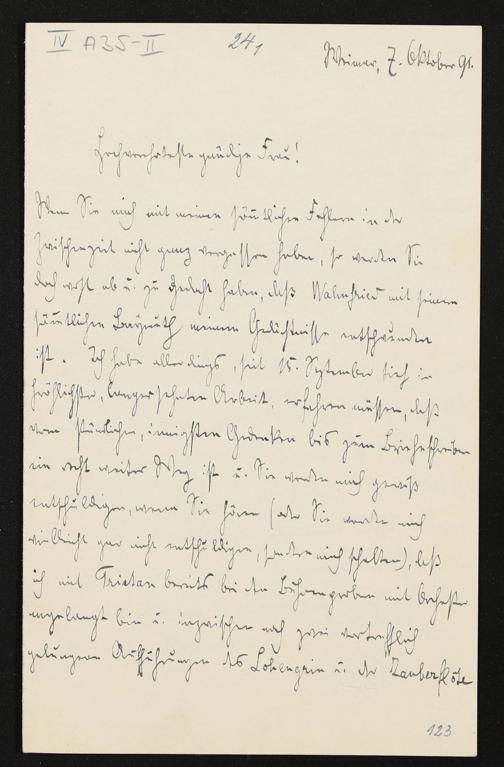 IV A 35-II
24,
Weimar, 7. Oktober 91.
Hochverehrteste gnädige Frau!
Wenn Sie mich mit meinen sämtlichen Fehlern in der
Zwischenzeit nicht ganz vergessen haben, so werden Sie
doch wohl ab u. zu gedacht haben, daß Wahnfried mit seinem
sämtlichen Bayreuth meinem Gedächtnisse entschwunden
ist. Ich habe allerdings, seit 15. September tief in
fröhlichster, langersehnter Arbeit, erfahren müssen, daß
vom stündlichen, innigsten Gedenken bis zum Briefschreiben
ein recht weiter Weg ist u. Sie werden mich gewiß
entschuldigen, wenn Sie hören (oder Sie werden mich
vielleicht gar nicht entschuldigen, sondern mich schelten), daß
ich mit Tristan bereits bei den Bühnenproben mit Orchester
angelangt bin u. inzwischen noch zwei vortrefflich
gelungene Aufführungen des Lohengrin u. der "Zauberflöte
123